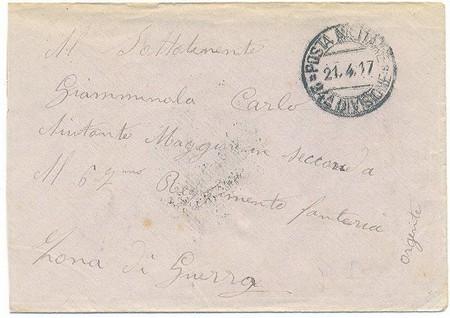 Al Sottotenente
Giamminola Carlo
Aiutante Maggiore in seconda
Al 69mo Reggimento fanteria
Zona di Guerra
urgente
POSTA MILITARE
21.4.17
DIVISIONE